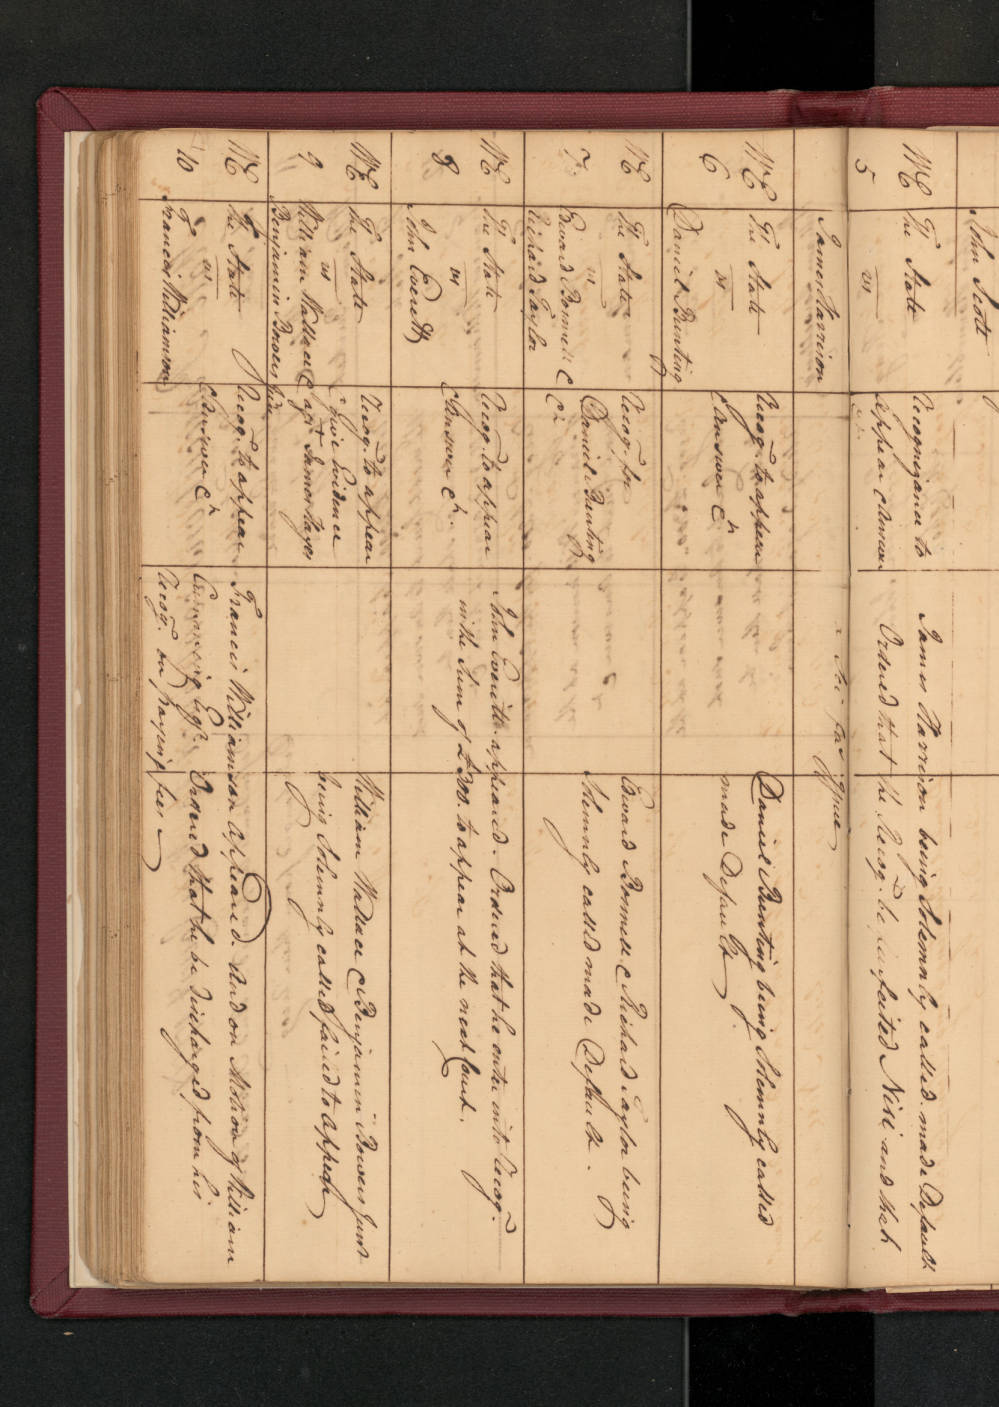 John Scott
WE
5
The State
vs
James Harrison
Recognizance to
appear & Answer
&c.
James Harrison being Solemnly called made Default
Ordered that the Recog. be forfeited Nisi and that
Sci fa issue
WE
6
The State
vs
Daniel Bunting
Recog. to appear
& Answer &c
Daniel Bunting being Solemnly called
made Default
WE
7
The State
vs
Edward Bonnell &
Richard Taylor
Recog. for
Daniel Bunting
&c
Edward Bonnell & Richard Taylor being
Solemnly called made Default.
WE
8
The State
vs
John Everitt
Recog. to appear
& Answer &c.
John Everitt appeared. Ordered that he enter into Recog.
in the Sum of £300. to appear at the next Court.
WE
9
The State
vs
William Wallace &
Benjamin Bowers Jun.
Recog. to appear
& give Evidence
agt. James Hayes
William Wallace & Benjamin Bowers Junr
being Solemnly called failed to appear
WE
10
The State
vs
Francis Williamson
Recog. to appear
& Answer &c
Francis Williamson appeared. And on Motion of William
Esqr. Ordered that he be discharged from his
Recog. on paying fees